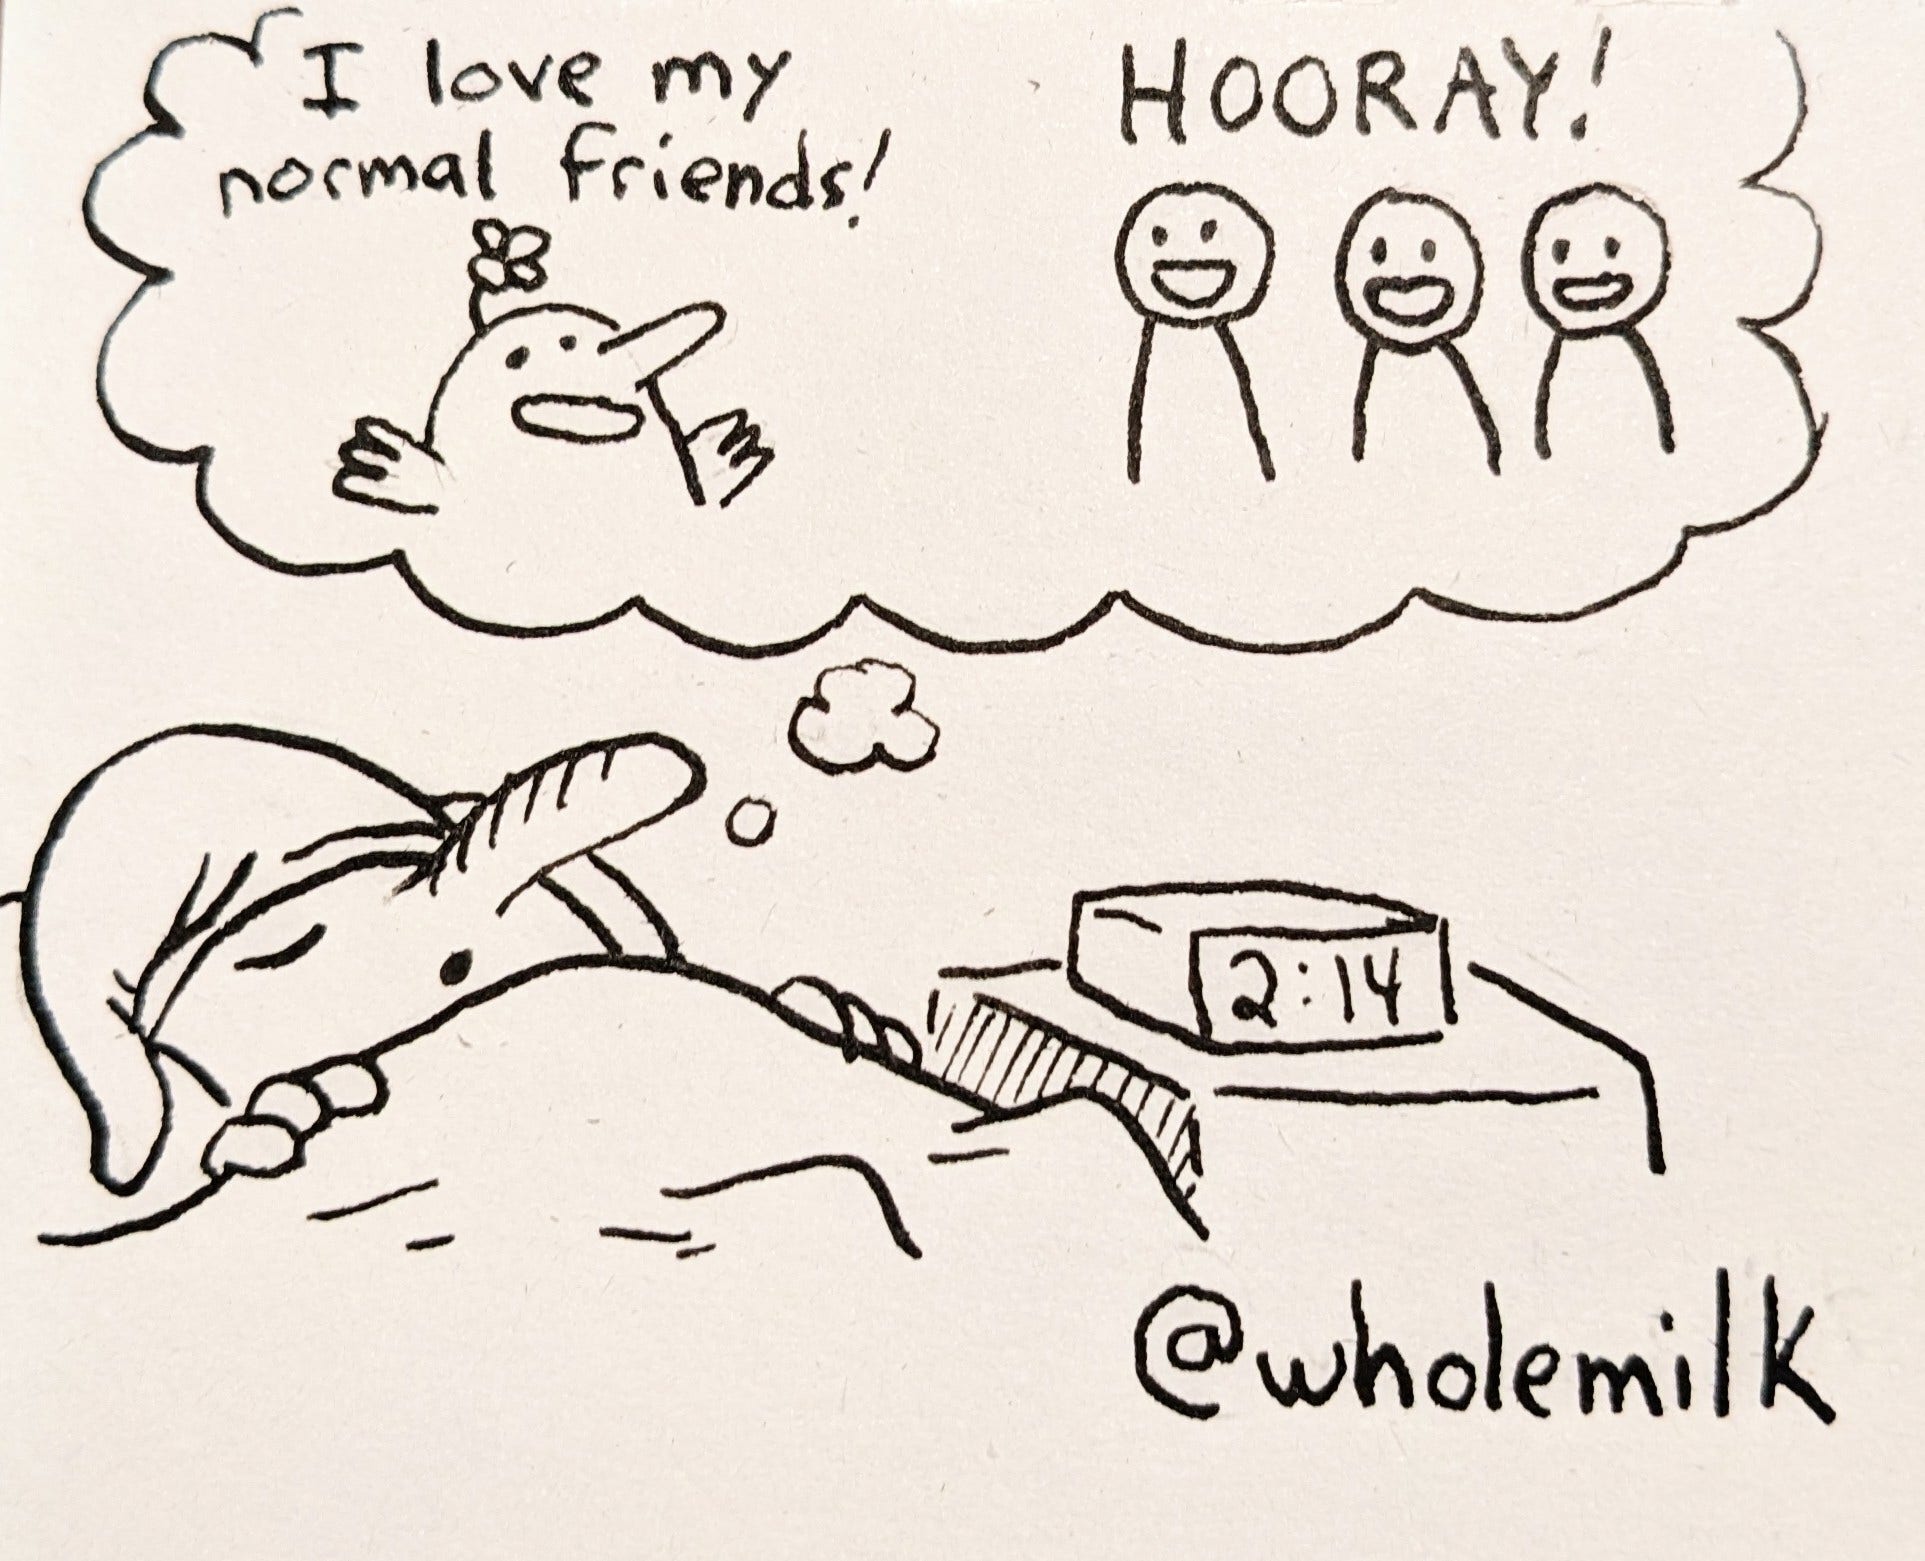 I love my
normal friends!
HOORAY!
2:14
@wholemilk